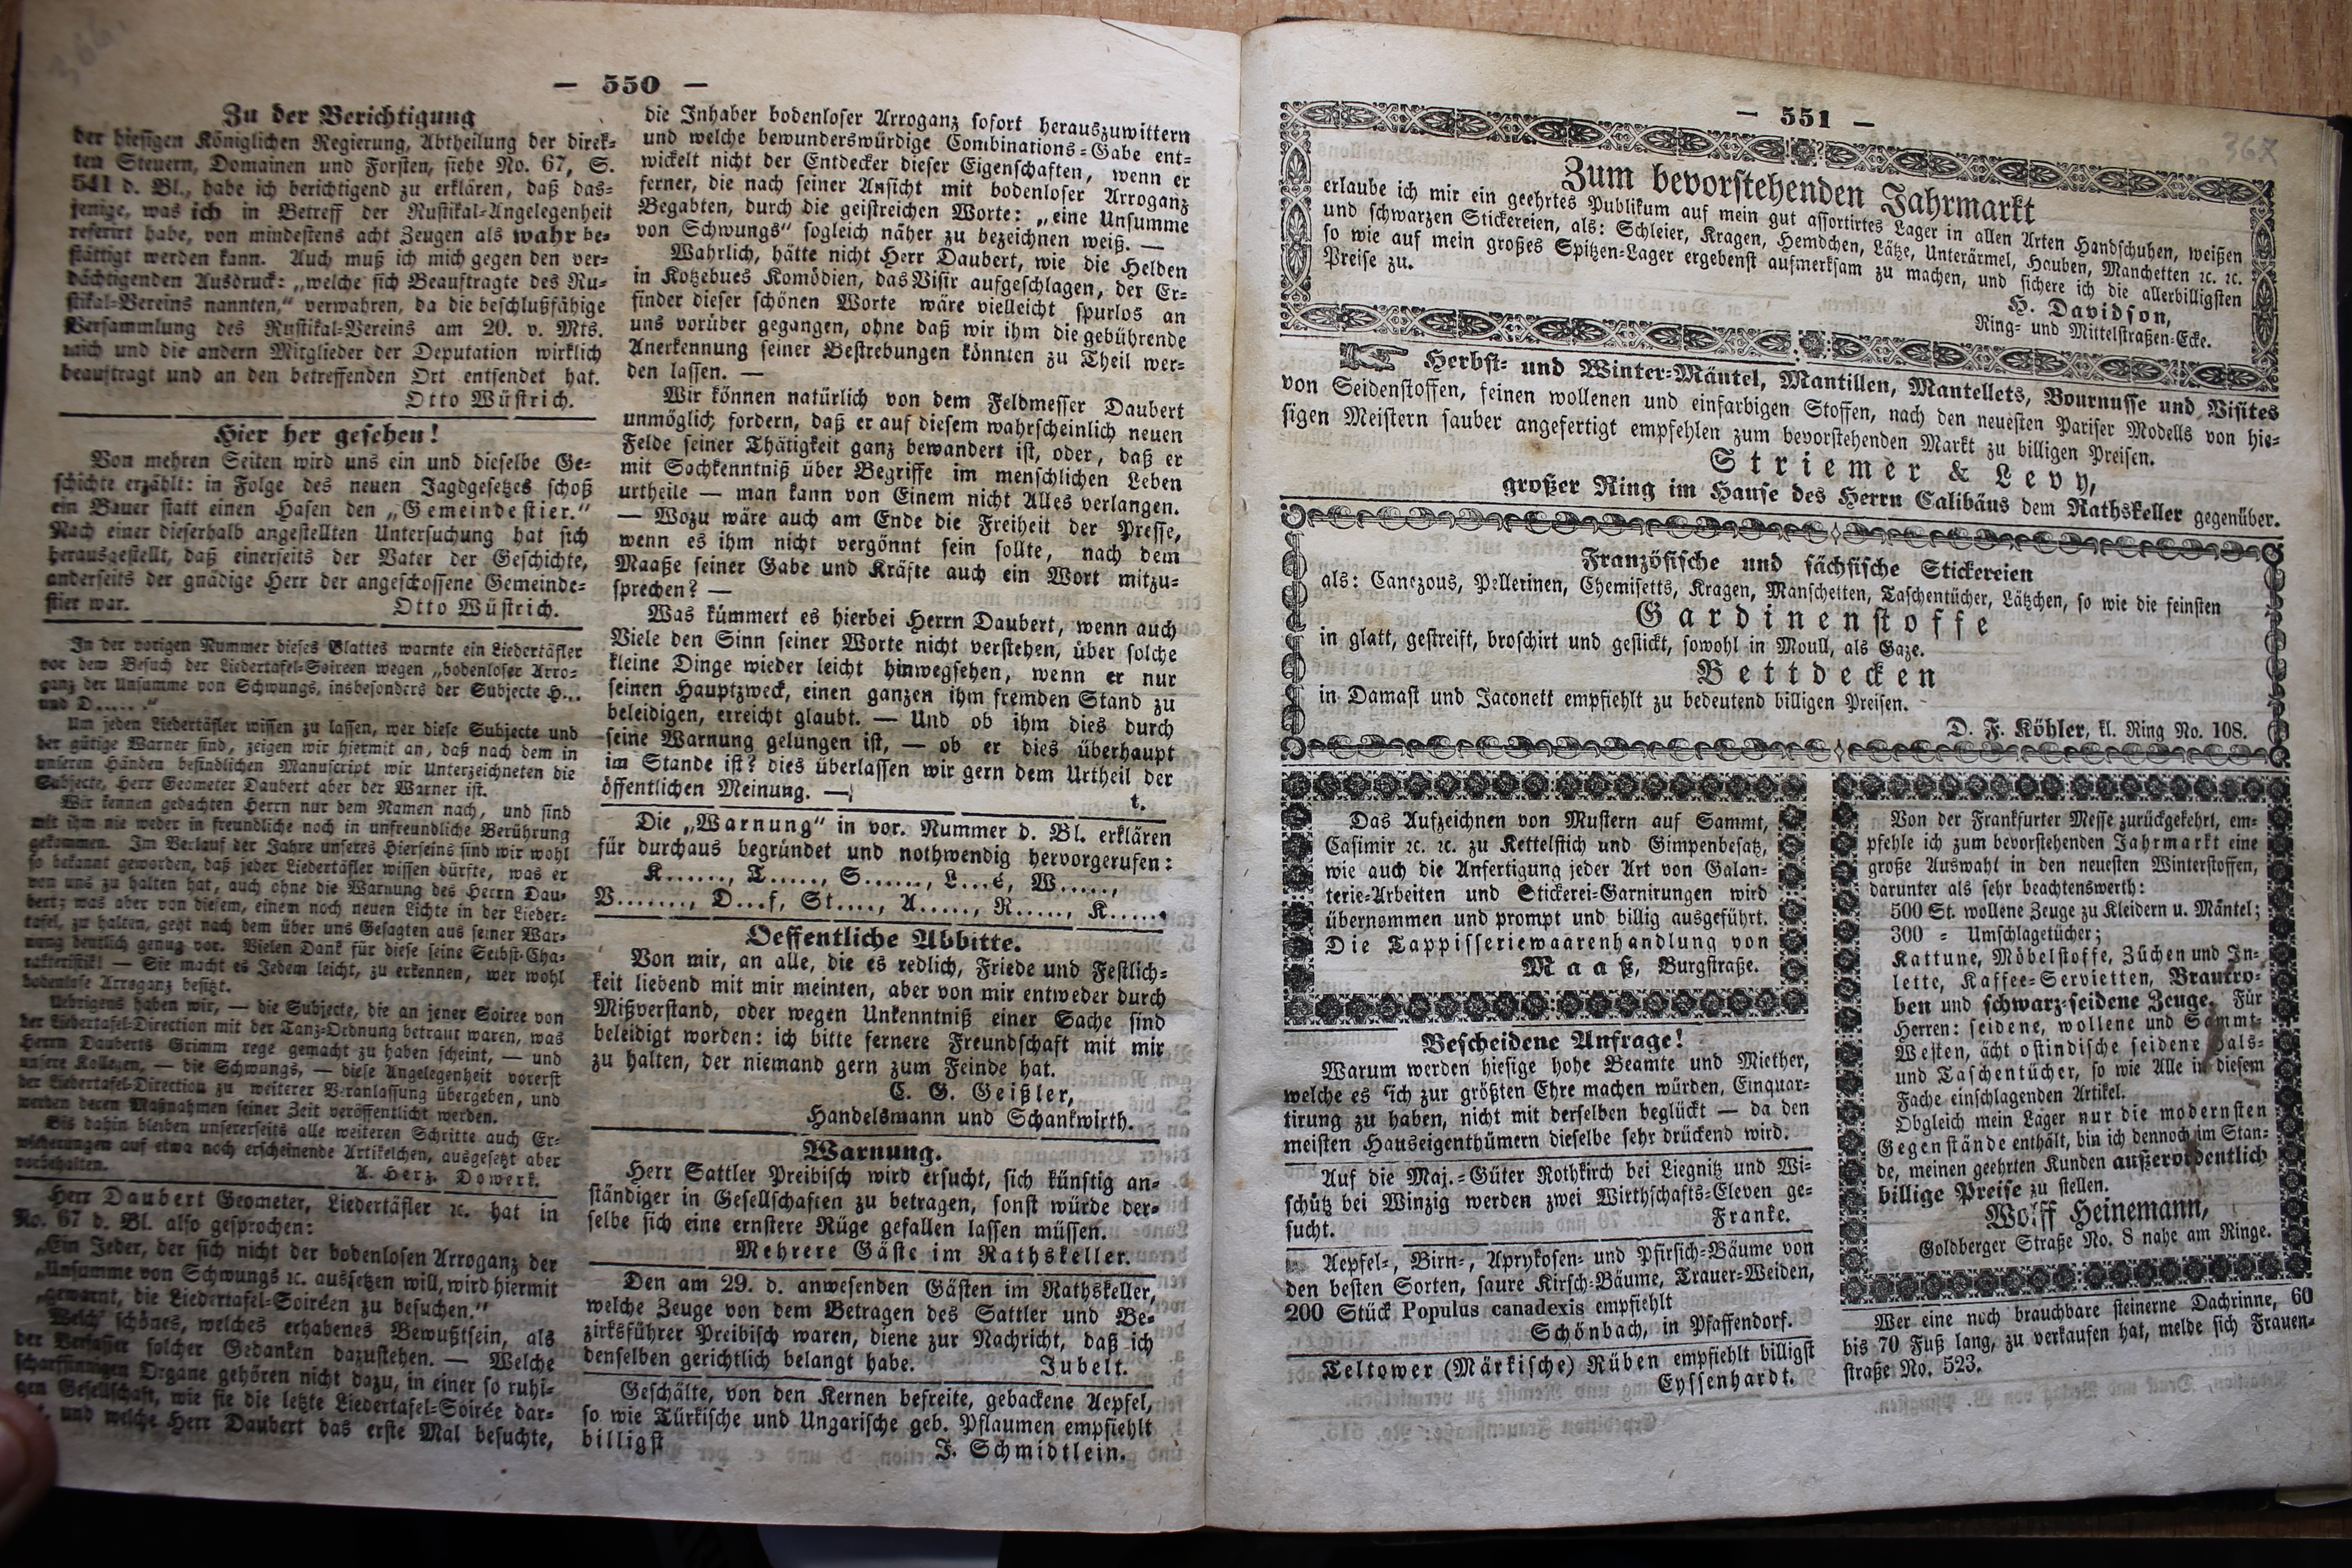 — 550 —
Zu der Berichtigung
der hiesigen Königlichen Regierung, Abtheilung der direk-
ten Steuern, Domainen und Forsten, siehe No. 67, S.
541 d. Bl., habe ich berichtigend zu erklären, daß das-
jenige, was ich in Betreff der Rustikal-Angelegenheit
referirt habe, von mindestens acht Zeugen als wahr be-
stättigt werden kann. Auch muß ich mich gegen den ver-
dächtigenden Ausdruck: „welche sich Beauftragte des Ru-
stikal-Vereins nannten,“ verwahren, da die beschlußfähige
Versammlung des Rustikal-Vereins am 20. v. Mts.
mich und die andern Mitglieder der Deputation wirklich
beauftragt und an den betreffenden Ort entsendet hat.
Otto Wüstrich.
Hier her gesehen!
Von mehren Seiten wird uns ein und dieselbe Ge-
schichte erzählt: in Folge des neuen Jagdgesetzes schoß
ein Bauer statt einen Hasen den „Gemeindestier.“
Nach einer dieserhalb angestellten Untersuchung hat sich
herausgestellt, daß einerseits der Vater der Geschichte,
anderseits der gnädige Herr der angeschossene Gemeinde-
stier war. Otto Wüstrich.
In der vorigen Nummer dieses Blattes warnte ein Liedertäfler
vor dem Besuch der Liedertafel-Soireen wegen „bodenloser Arro-
ganz der Unsumme von Schwungs, insbesonders der Subjecte H...
und D......“
Um jeden Liedertäfler wissen zu lassen, wer diese Subjecte und
der gütige Warner sind, zeigen wir hiermit an, daß nach dem in
unseren Händen befindlichen Manuscript wir Unterzeichneten die
Subjecte, Herr Geometer Daubert aber der Warner ist.
Wir kennen gedachten Herrn nur dem Namen nach, und sind
mit ihm nie weder in freundliche noch in unfreundliche Berührung
gekommen. Im Verlauf der Jahre unseres Hierseins sind wir wohl
so bekannt geworden, daß jeder Liedertäfler wissen dürfte, was er
von uns zu halten hat, auch ohne die Warnung des Herrn Dau-
bert; was aber von diesem, einem noch neuen Lichte in der Lieder-
tafel, zu halten, geht nach dem über uns Gesagten aus seiner War-
nung deutlich genug vor. Vielen Dank für diese seine Selbst-Cha-
rakteristik! — Sie macht es Jedem leicht, zu erkennen, wer wohl
bodenlose Arroganz besitzt.
Uebrigens haben wir, — die Subjecte, die an jener Soiree von
der Liedertafel-Direction mit der Tanz-Ordnung betraut waren, was
Herrn Dauberts Grimm rege gemacht zu haben scheint, — und
unsere Kollegen, — die Schwungs, — diese Angelegenheit vorerst
der Liedertafel-Direction zu weiterer Veranlassung übergeben, und
werden deren Maßnahmen seiner Zeit veröffentlicht werden.
Bis dahin bleiben unsererseits alle weiteren Schritte auch Er-
wiederungen auf etwa noch erscheinende Artikelchen, ausgesetzt aber
vorbehalten. A. Herz. Dowerk.
Herr Daubert Geometer, Liedertäfler ꝛc. hat in
No. 67 d. Bl. also gesprochen:
„Ein Jeder, der sich nicht der bodenlosen Arroganz der
„Unsumme von Schwungs ꝛc. aussetzen will, wird hiermit
„gewarnt, die Liedertafel-Soiréen zu besuchen.“
Welch' schönes, welches erhabenes Bewußtsein, als
der Verfasser solcher Gedanken dazustehen. — Welche
scharfsinnigen Organe gehören nicht dazu, in einer so ruhi-
gen Gesellschaft, wie sie die letzte Liedertafel-Soirée dar-
und welche Herr Daubert das erste Mal besuchte,
die Inhaber bodenloser Arroganz sofort herauszuwittern
und welche bewunderswürdige Combinations-Gabe ent-
wickelt nicht der Entdecker dieser Eigenschaften, wenn er
ferner, die nach seiner Ansicht mit bodenloser Arroganz
Begabten, durch die geistreichen Worte: „eine Unsumme
von Schwungs“ sogleich näher zu bezeichnen weiß. —
Wahrlich, hätte nicht Herr Daubert, wie die Helden
in Kotzebues Komödien, das Visir aufgeschlagen, der Er-
finder dieser schönen Worte wäre vielleicht spurlos an
uns vorüber gegangen, ohne daß wir ihm die gebührende
Anerkennung seiner Bestrebungen könnten zu Theil wer-
den lassen. —
Wir können natürlich von dem Feldmesser Daubert
unmöglich fordern, daß er auf diesem wahrscheinlich neuen
Felde seiner Thätigkeit ganz bewandert ist, oder, daß er
mit Sachkenntniß über Begriffe im menschlichen Leben
urtheile — man kann von Einem nicht Alles verlangen.
— Wozu wäre auch am Ende die Freiheit der Presse,
wenn es ihm nicht vergönnt sein sollte, nach dem
Maaße seiner Gabe und Kräfte auch ein Wort mitzu-
sprechen? —
Was kümmert es hierbei Herrn Daubert, wenn auch
Viele den Sinn seiner Worte nicht verstehen, über solche
kleine Dinge wieder leicht hinwegsehen, wenn er nur
seinen Hauptzweck, einen ganzen ihm fremden Stand zu
beleidigen, erreicht glaubt. — Und ob ihm dies durch
seine Warnung gelungen ist, — ob er dies überhaupt
im Stande ist? dies überlassen wir gern dem Urtheil der
öffentlichen Meinung. —
t.
Die „Warnung“ in vor. Nummer d. Bl. erklären
für durchaus begründet und nothwendig hervorgerufen:
K......, T....., S......, L...é, W.....,
V......., D...f, St...., A....., R....., K......
Oeffentliche Abbitte.
Von mir, an alle, die es redlich, Friede und Festlich-
keit liebend mit mir meinten, aber von mir entweder durch
Mißverstand, oder wegen Unkenntniß einer Sache sind
beleidigt worden: ich bitte fernere Freundschaft mit mir
zu halten, der niemand gern zum Feinde hat.
C. G. Geißler,
Handelsmann und Schankwirth.
Warnung.
Herr Sattler Preibisch wird ersucht, sich künftig an-
ständiger in Gesellschaften zu betragen, sonst würde der-
selbe sich eine ernstere Rüge gefallen lassen müssen.
Mehrere Gäste im Rathskeller.
Den am 29. d. anwesenden Gästen im Rathskeller,
welche Zeuge von dem Betragen des Sattler und Be-
zirksführer Preibisch waren, diene zur Nachricht, daß ich
denselben gerichtlich belangt habe. Jubelt.
Geschälte, von den Kernen befreite, gebackene Aepfel,
so wie Türkische und Ungarische geb. Pflaumen empfiehlt
billigst J. Schmidtlein.
— 551 —
367
Zum bevorstehenden Jahrmarkt
erlaube ich mir ein geehrtes Publikum auf mein gut assortirtes Lager in allen Arten Handschuhen, weißen
und schwarzen Stickereien, als: Schleier, Kragen, Hemdchen, Lätze, Unterärmel, Hauben, Manchetten ꝛc. ꝛc.
so wie auf mein großes Spitzen-Lager ergebenst aufmerksam zu machen, und sichere ich die allerbilligsten
Preise zu.
H. Davidson,
Ring- und Mittelstraßen-Ecke.
Herbst- und Winter-Mäntel, Mantillen, Mantellets, Bournusse und Visites
von Seidenstoffen, feinen wollenen und einfarbigen Stoffen, nach den neuesten Pariser Modells von hie-
sigen Meistern sauber angefertigt empfehlen zum bevorstehenden Markt zu billigen Preisen.
Striemer & Levy,
großer Ring im Hause des Herrn Calibäus dem Rathskeller gegenüber.
Französische und sächsische Stickereien
als: Canezous, Pellerinen, Chemisetts, Kragen, Manschetten, Taschentücher, Lätzchen, so wie die feinsten
Gardinenstoffe
in glatt, gestreift, broschirt und gestickt, sowohl in Moull, als Gaze.
Bettdecken
in Damast und Jaconett empfiehlt zu bedeutend billigen Preisen.
D. F. Köhler, kl. Ring No. 108.
Das Aufzeichnen von Mustern auf Sammt,
Casimir ꝛc. ꝛc. zu Kettelstich und Gimpenbesatz,
wie auch die Anfertigung jeder Art von Galan-
terie-Arbeiten und Stickerei-Garnirungen wird
übernommen und prompt und billig ausgeführt.
Die Tappisseriewaarenhandlung von
Maaß, Burgstraße.
Bescheidene Anfrage!
Warum werden hiesige hohe Beamte und Miether,
welche es sich zur größten Ehre machen würden, Einquar-
tirung zu haben, nicht mit derselben beglückt — da den
meisten Hauseigenthümern dieselbe sehr drückend wird.
Auf die Maj.-Güter Rothkirch bei Liegnitz und Wi-
schütz bei Winzig werden zwei Wirthschafts-Eleven ge-
sucht. Franke.
Aepfel-, Birn-, Aprykosen- und Pfirsich-Bäume von
den besten Sorten, saure Kirsch-Bäume, Trauer-Weiden,
200 Stück Populus canadexis empfiehlt
Schönbach, in Pfaffendorf.
Teltower (Märkische) Rüben empfiehlt billigst
Eyssenhardt.
Von der Frankfurter Messe zurückgekehrt, em-
pfehle ich zum bevorstehenden Jahrmarkt eine
große Auswahl in den neuesten Winterstoffen,
darunter als sehr beachtenswerth:
500 St. wollene Zeuge zu Kleidern u. Mäntel;
300 = Umschlagetücher;
Kattune, Möbelstoffe, Züchen und In-
lette, Kaffee-Servietten, Brautro-
ben und schwarz-seidene Zeuge. Für
Herren: seidene, wollene und Sammt-
Westen, ächt ostindische seidene Hals-
und Taschentücher, so wie Alle in diesem
Fache einschlagenden Artikel.
Obgleich mein Lager nur die modernsten
Gegenstände enthält, bin ich dennoch im Stan-
de, meinen geehrten Kunden außerordentlich
billige Preise zu stellen.
Wolff Heinemann,
Goldberger Straße No. 8 nahe am Ringe.
Wer eine noch brauchbare steinerne Dachrinne, 60
bis 70 Fuß lang, zu verkaufen hat, melde sich Frauen-
straße No. 523.